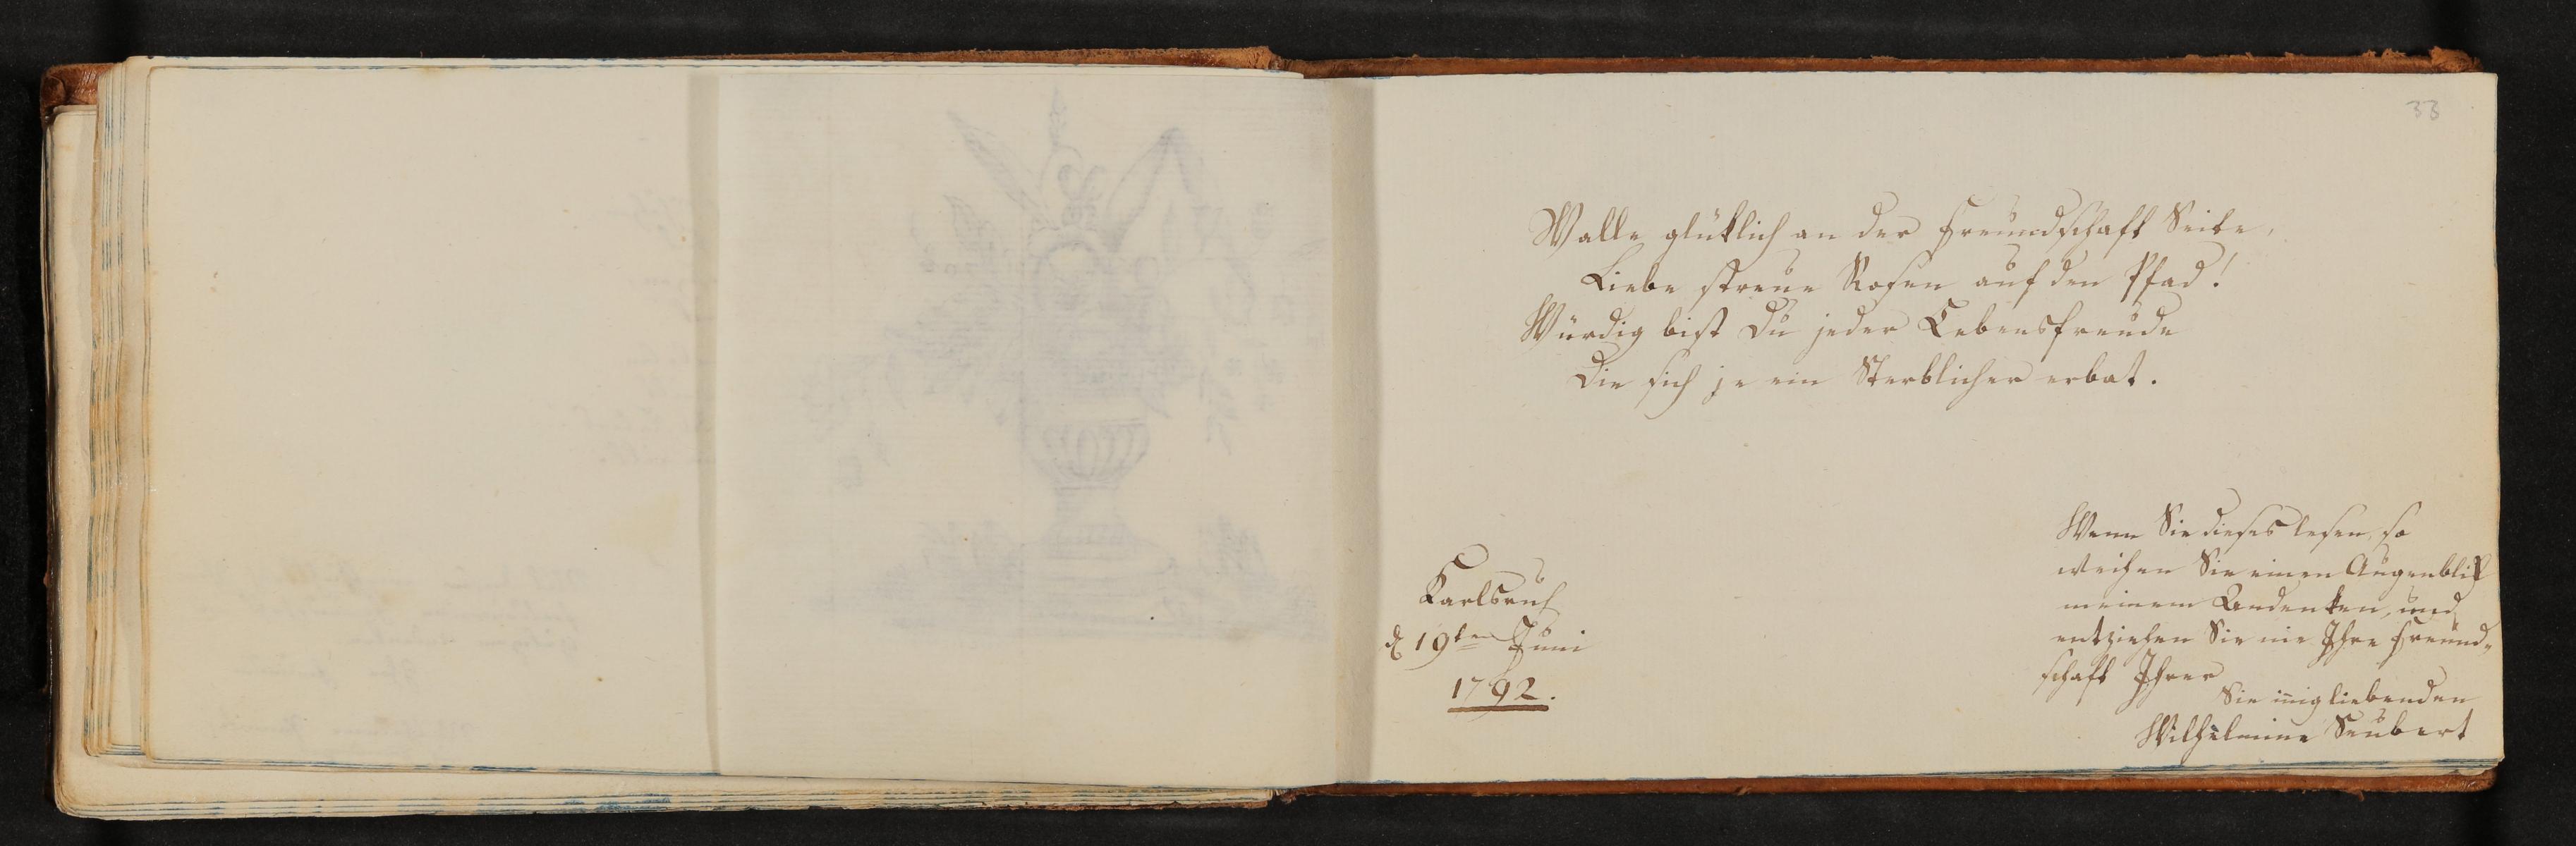 33
Walle glüklich an der Freundschaft Seite,
Liebe streue Rosen auf den Pfad!
Würdig bist Du jeder Lebensfreude
Die sich je ein Sterblicher erbat.
Wenn Sie dieses lesen, so
weihen Sie einen Augenblik
meinem Andenken, und
entziehen Sie nie Ihre Freund„
schaft Ihrer
Sie innigliebenden
Wilhelmine Seubert
Karlsruh
d 19ten Juni
1792.